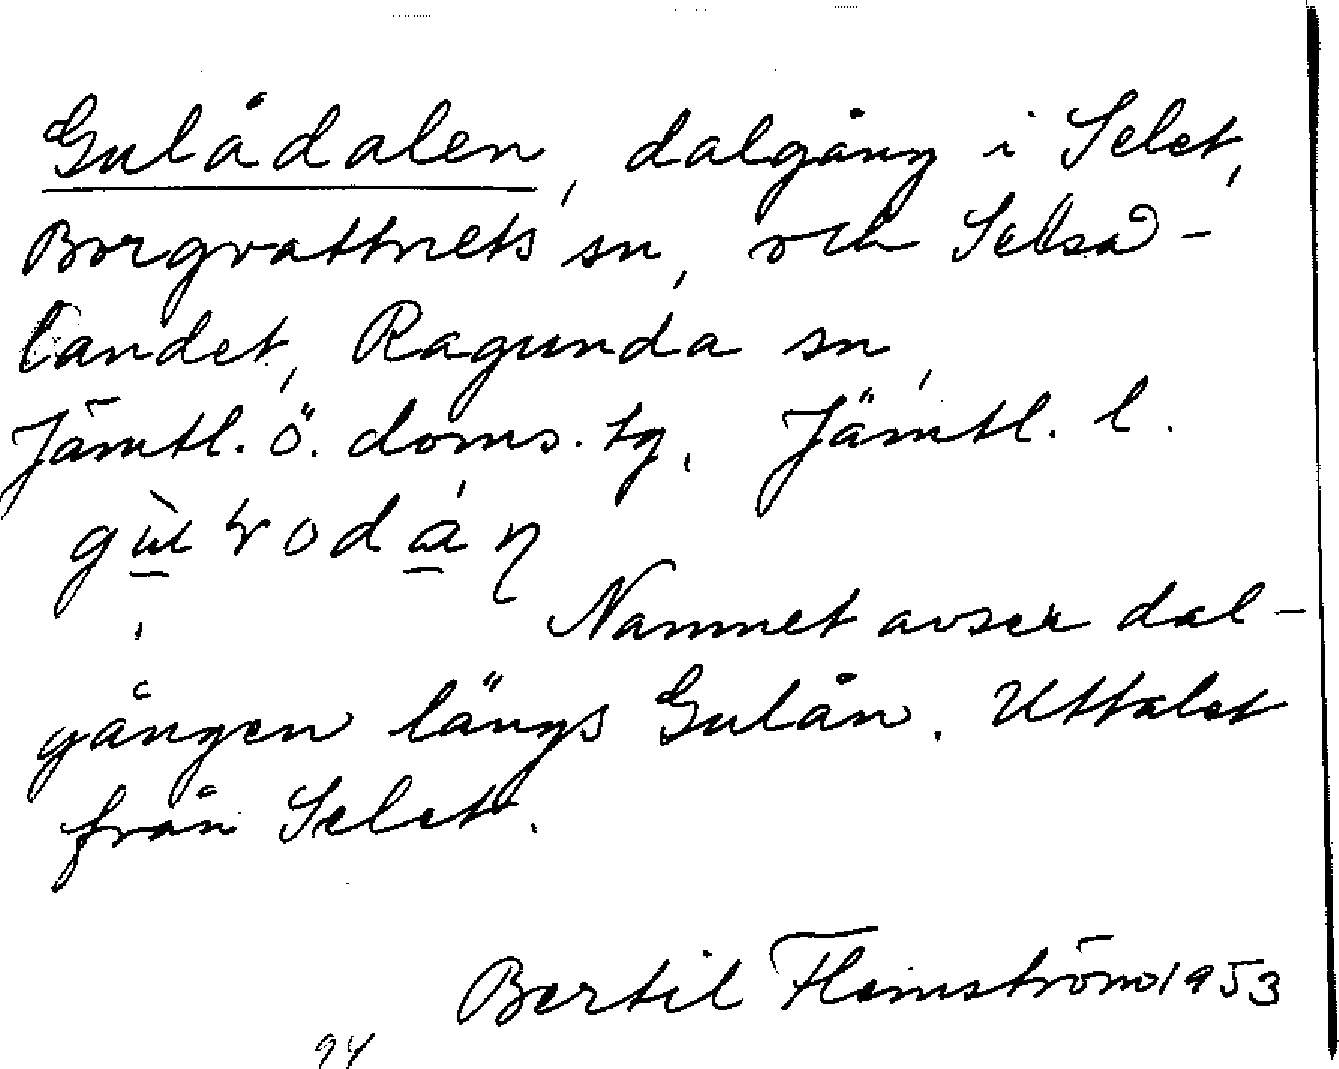 Gulådalen, dalgång i Selet,
Borgvattnets sn, och Selså-
landet, Ragunda sn,
Jämtl. ö. doms. tg, Jämtl. l.
Namnet avser dal-
gången längs Gulån. Uttalet
från Selet.
Bertil Flemström 1953
94